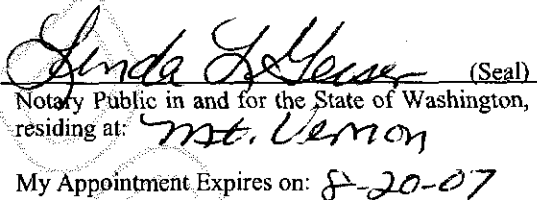 Linda L Geiser (Seal)
Notary Public in and for the State of Washington,
residing at: Mt. Vernon
My Appointment Expires on: 8-20-07